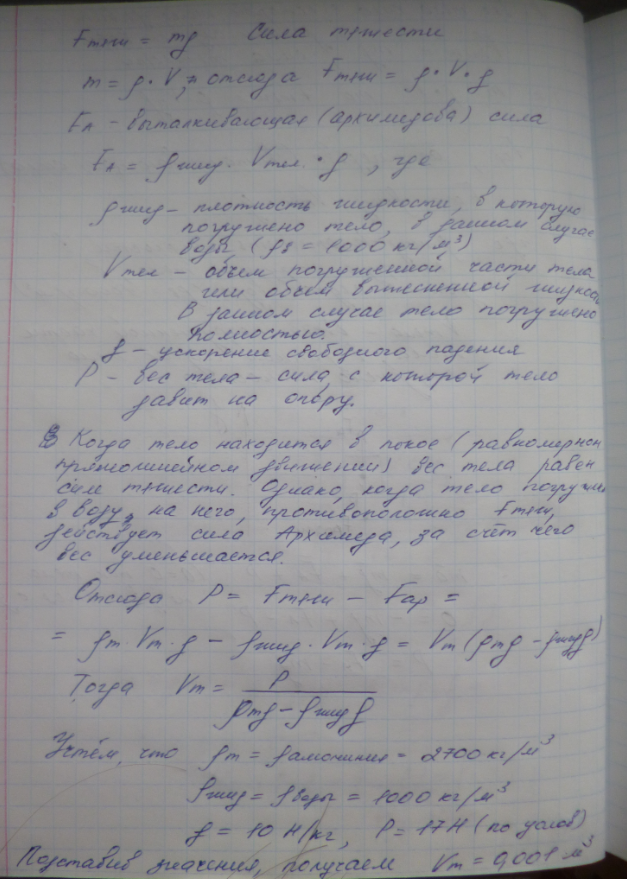 Fтяж = mg Сила тяжести
m = ρ·V, отсюда Fтяж = ρ·V·g
FA – выталкивающая (архимедова) сила
FA = ρжид·Vтел·g, где
ρжид – плотность жидкости, в которую
погружено тело, в данном случае
воды (ρв = 1000 кг/м³)
Vтел – объем погруженной части тела
или объем вытесненной
В данном случае тело погружено
полностью.
g – ускорение свободного падения
P – вес тела – сила с которой тело
давит на опору.
Когда тело находится в покое (равномерном
прямолинейном движении) вес тела равен
силе тяжести. Однако, когда тело
в воду, на него, противоположно Fтяж,
действует сила Архимеда, за счёт чего
вес уменьшается.
Отсюда P = Fтяж – Fар =
= ρт·Vт·g – ρжид·Vт·g = Vт(ρтg – ρжидg)
Тогда Vт = P / (ρтg – ρжидg)
Учтём, что ρт = ρалюминия = 2700 кг/м³
ρжид = ρводы = 1000 кг/м³
g = 10 Н/кг, P = 17Н (по услов)
Подставив значения, получаем Vт = 0,001 м³